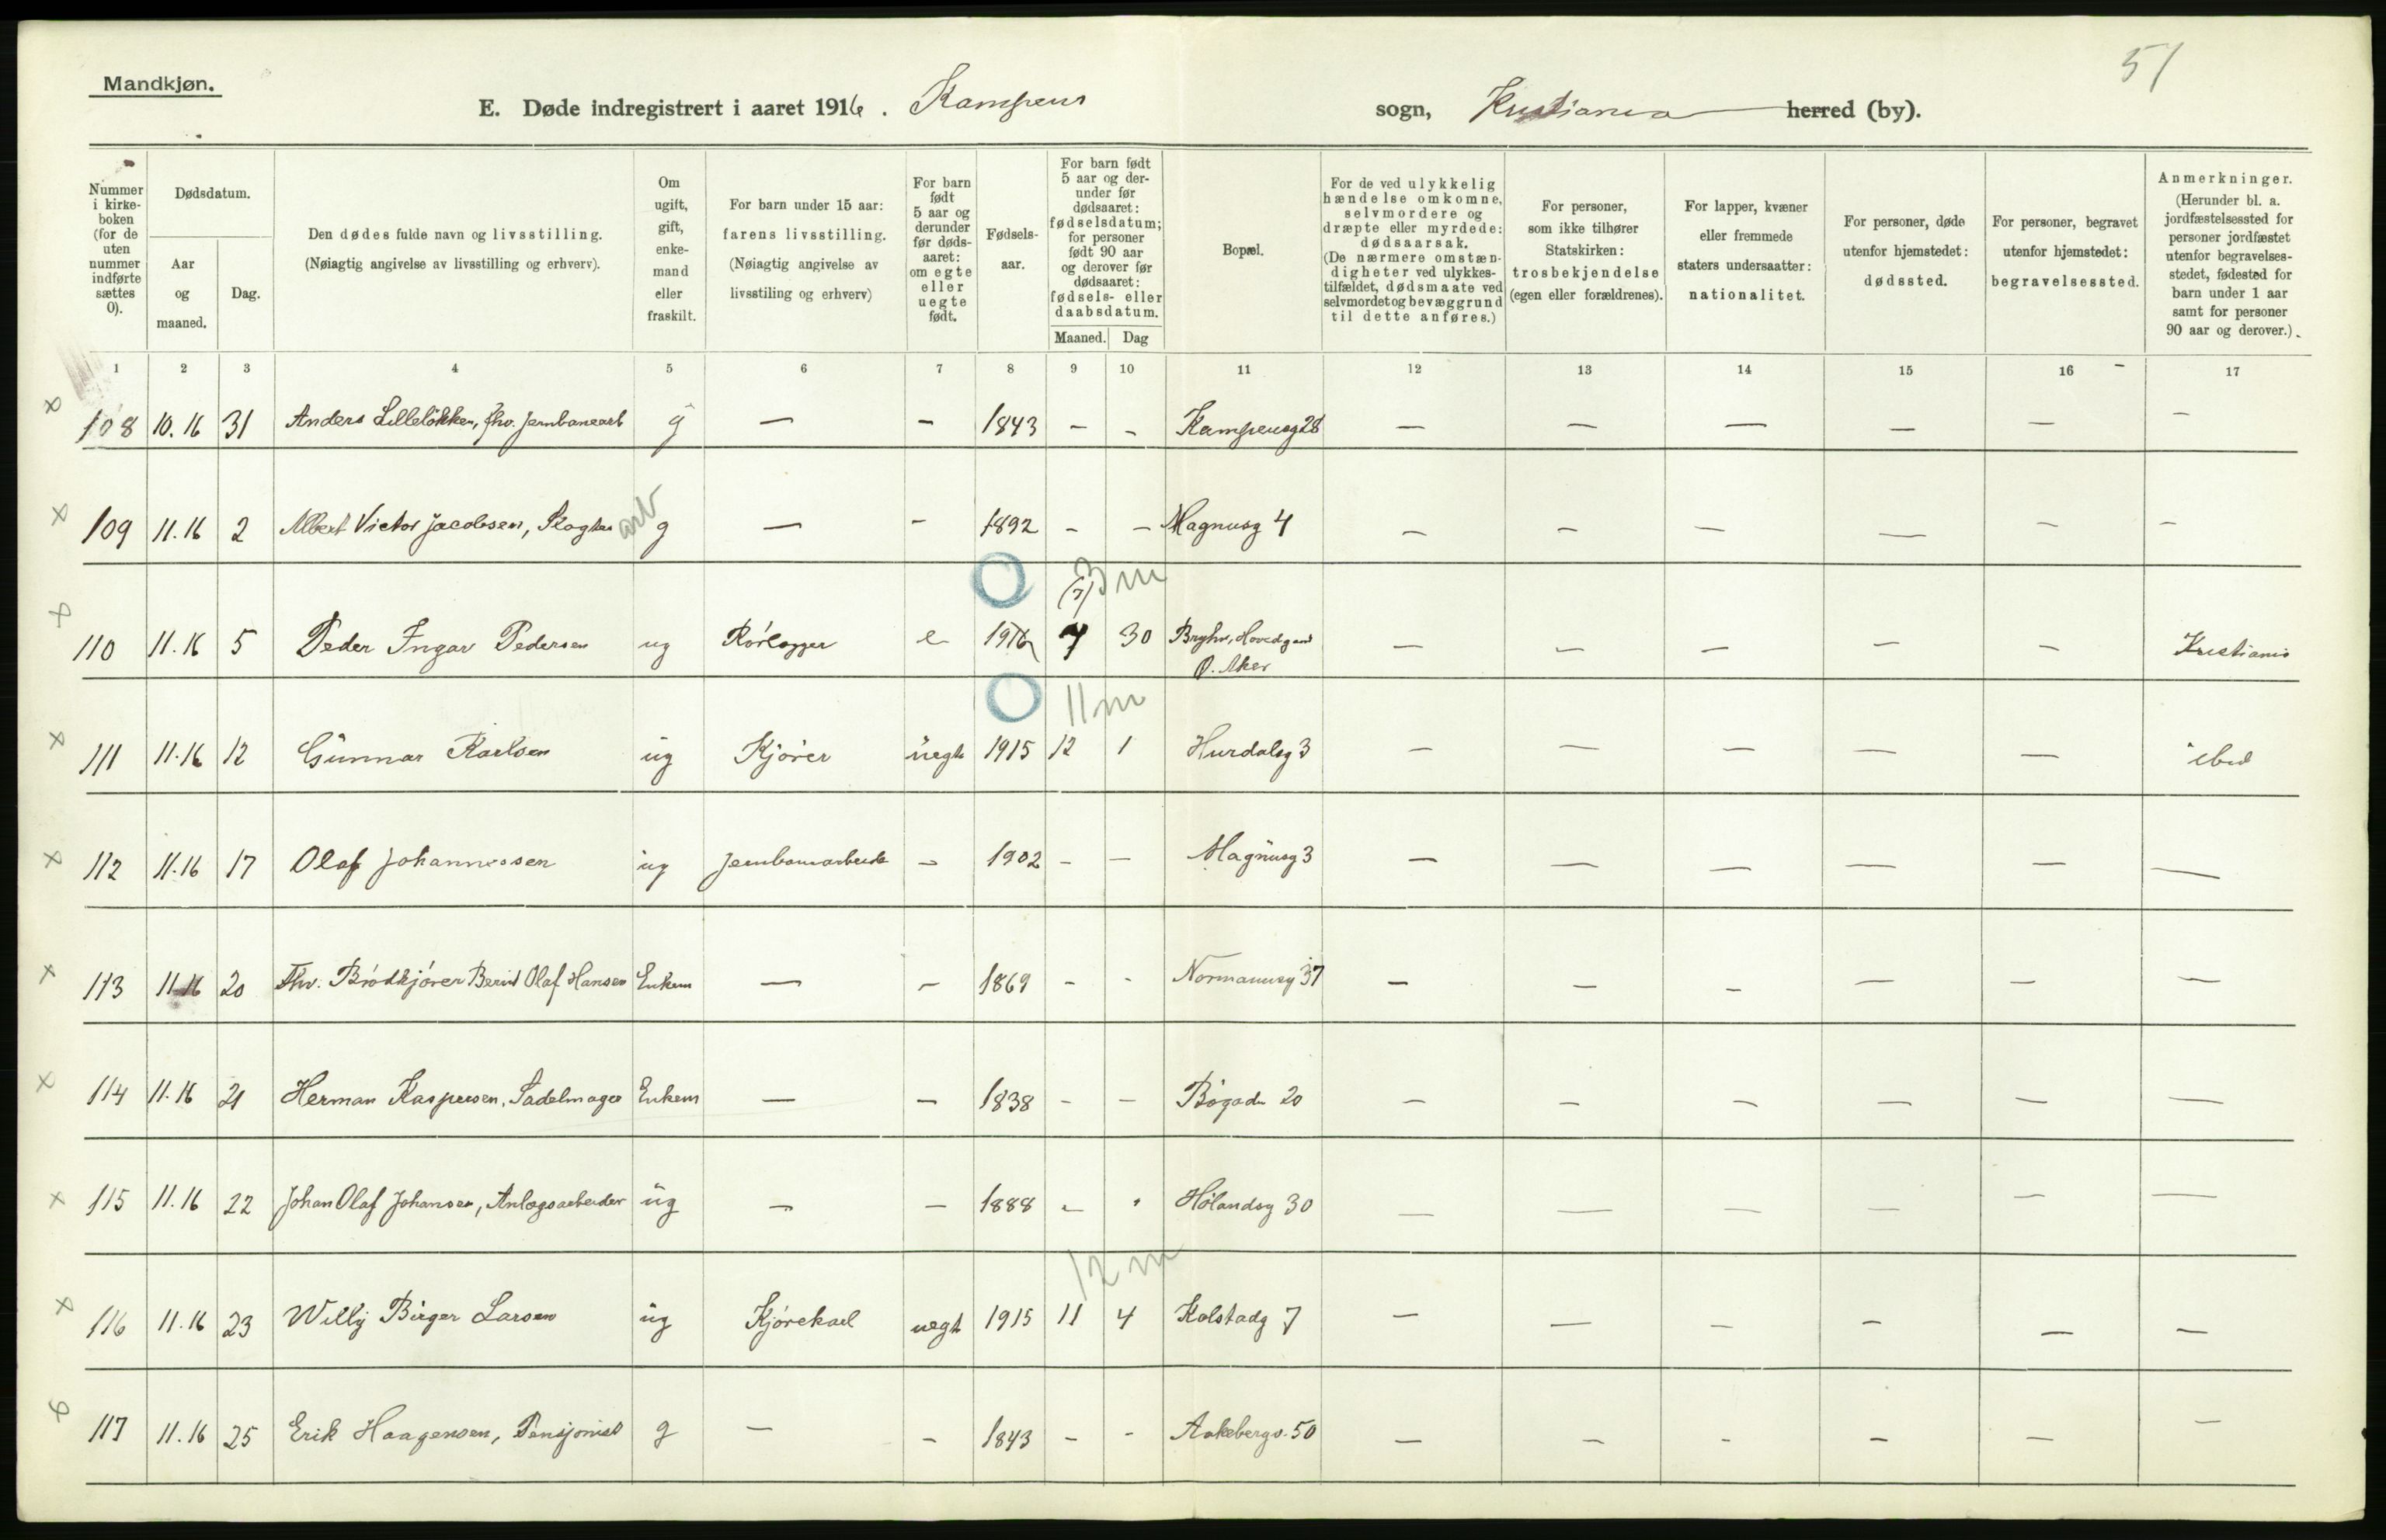 51
Mandkjøn.
E. Døde indregistrert i aaret 1916. Kampens sogn, Kristiania herred (by).
Nummer i kirke-boken (for de uten nummer indførte sættes 0).
Dødsdatum.
Aar og maaned.
Dag.
Den dødes fulde navn og livsstilling. (Nøiagtig angivelse av livsstilling og erhverv).
Om ugift, gift, enke-mand eller fraskilt.
For barn under 15 aar: farens livsstilling. (Nøiagtig angivelse av livsstiling og erhverv)
For barn født 5 aar og derunder før døds-aaret: om egte eller uegte født.
Fødsels-aar.
For barn født 5 aar og der-under før dødsaaret: fødselsdatum; for personer født 90 aar og derover før dødsaaret: fødsels- eller daabsdatum.
Maaned. Dag
Bopæl.
For de ved ulykkelig hændelse omkomne, selvmordere og dræpte eller myrdede: dødsaarsak. (De nærmere omstæn-digheter ved ulykkes-tilfældet, dødsmaate ved selvmordet og bevæggrund til dette anføres.)
For personer, som ikke tilhører Statskirken: trosbekjendelse (egen eller forældrenes).
For lapper, kvæner eller fremmede staters undersaatter: nationalitet.
For personer, døde utenfor hjemstedet: dødssted.
For personer, begravet utenfor hjemstedet: begravelsessted.
Anmerkninger. (Herunder bl. a. jordfæstelsessted for personer jordfæstet utenfor begravelses-stedet, fødested for barn under 1 aar samt for personer 90 aar og derover.)
1 2 3 4 5 6 7 8 9 10 11 12 13 14 15 16 17
x 108 10.16 31 Anders Lilleløkken, fhv. jernbanearb g — — 1843 - - Kampensg 28 — — — — — —
x 109 11.16 2 Albert Victor Jacobsen, Slagter arb g — - 1892 - - Magnusg 4 — — — — — —
(7) 3 m
x 110 11.16 5 Peder Ingar Pedersen ug Rørlægger e 1916 7 30 Brynhv. Hovedgaard — — — — — Kristiania
Ø. Aker
11 m
x 111 11.16 12 Gunnar Karlsen ug Kjører uegte 1915 12 1 Hurdalsg 3 — — — — — ibid
x 112 11.16 17 Olaf Johannessen ug jernbanearbeide — 1902 - — Magnusg 3 — — — — — —
x 113 11.16 20 Fhv. Brødkjører Bernt Olaf Hansen Enkem — - 1869 - - Normannsg 37 — — — — — —
x 114 11.16 21 Herman Kaspersen, Sadelmager Enkem — — 1838 - — Bøgade 20 — — — — — —
x 115 11.16 22 Johan Olaf Johansen, Anlægsarbeider ug — — 1888 - - Hølandsg 30 — — — — — —
12 m
x 116 11.16 23 Willy Birger Larsen ug Kjørekarl uegt 1915 11 4 Kolstadg 7 — — — — — —
x 117 11.16 25 Erik Haagensen, Pensjonist g — - 1843 - - Aakebergv. 50 — — — — — —